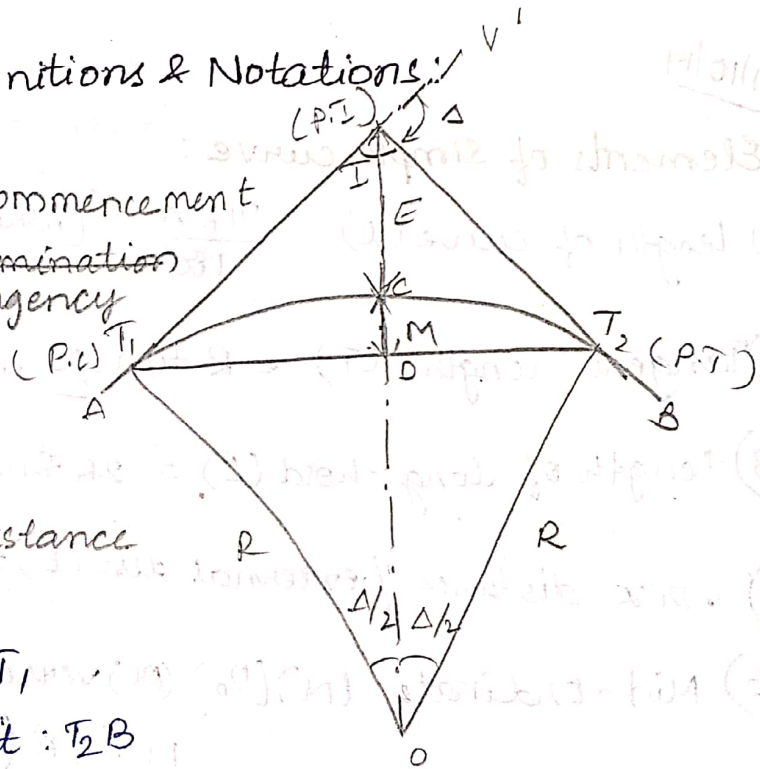 nitions & Notations:
V'
(P.I)
Δ
I
E
ommencement
mination
gency
C
T1
(P.C)
M
T2 (P.T)
D
A
B
stance
R
R
Δ/2
Δ/2
T1
t : T2B
O